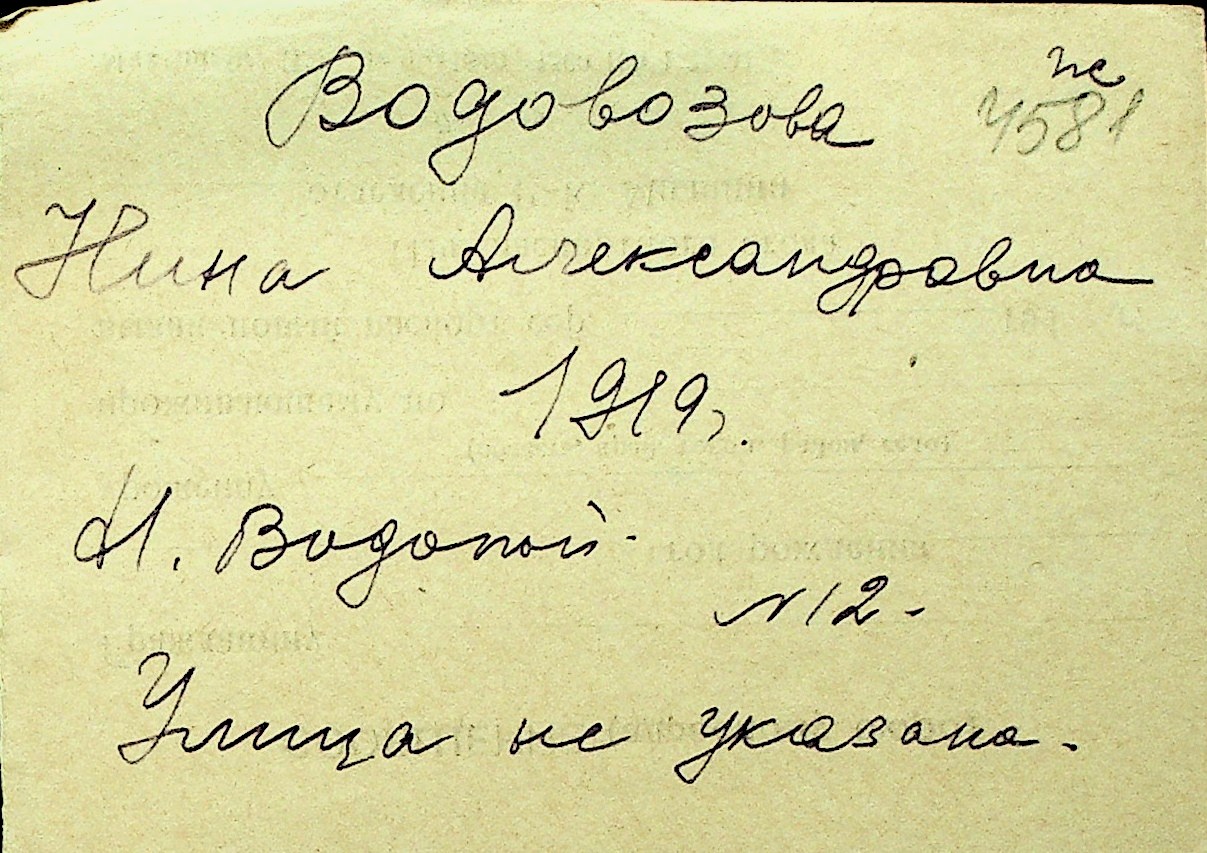 Водовозова
4581
Нина Александровна
1919г.
Н. Водопой.
N12.
Улица не указана.